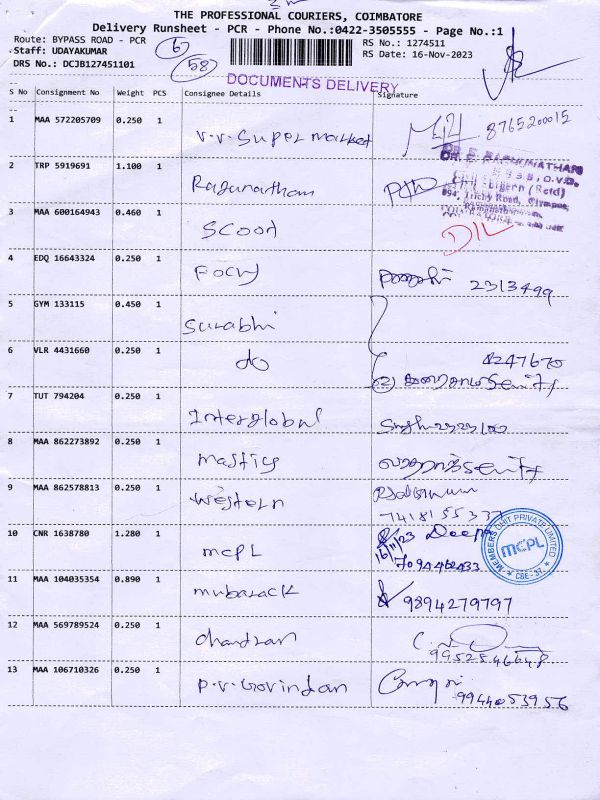 THE PROFESSIONAL COURIERS, COIMBATORE
Delivery Runsheet - PCR - Phone No.:0422-3505555 - Page No.:1
Route: BYPASS ROAD - PCR
6
RS No.: 1274511
Staff: UDAYAKUMAR
RS Date: 16-Nov-2023
DRS No.: DCJB127451101
58
DOCUMENTS DELIVERY
S No Consignment No Weight PCS Consignee Details Signature
1 MAA 572205709 0.250 1 V.V. Super market 8765200015
2 TRP 5919691 1.100 1 Ragunatham
DR. E. RAGHUNATHAN
M.B.B.S., D.V.D.
Civil Surgeon (Retd)
894, Trichy Road, Olympus,
Ramanathapuram,
3 MAA 600164943 0.460 1 Scoon
4 EDQ 16643324 0.250 1 Focus 2313499
5 GYM 133115 0.450 1 Surabhi
6 VLR 4431660 0.250 1 do 4247670
7 TUT 794204 0.250 1 Interglobal
8 MAA 862273892 0.250 1
9 MAA 862578813 0.250 1 Western
7418155337
10 CNR 1638780 1.280 1 MCPL 16/11/23 Deepa
7094462433
MEMBERS UNIT PRIVATE LIMITED
MCPL
CBE - 37
11 MAA 104035354 0.890 1 Mubarack 9894279797
12 MAA 569789524 0.250 1 Chandran
9952546648
13 MAA 106710326 0.250 1 P.V. Govindan 9944053956